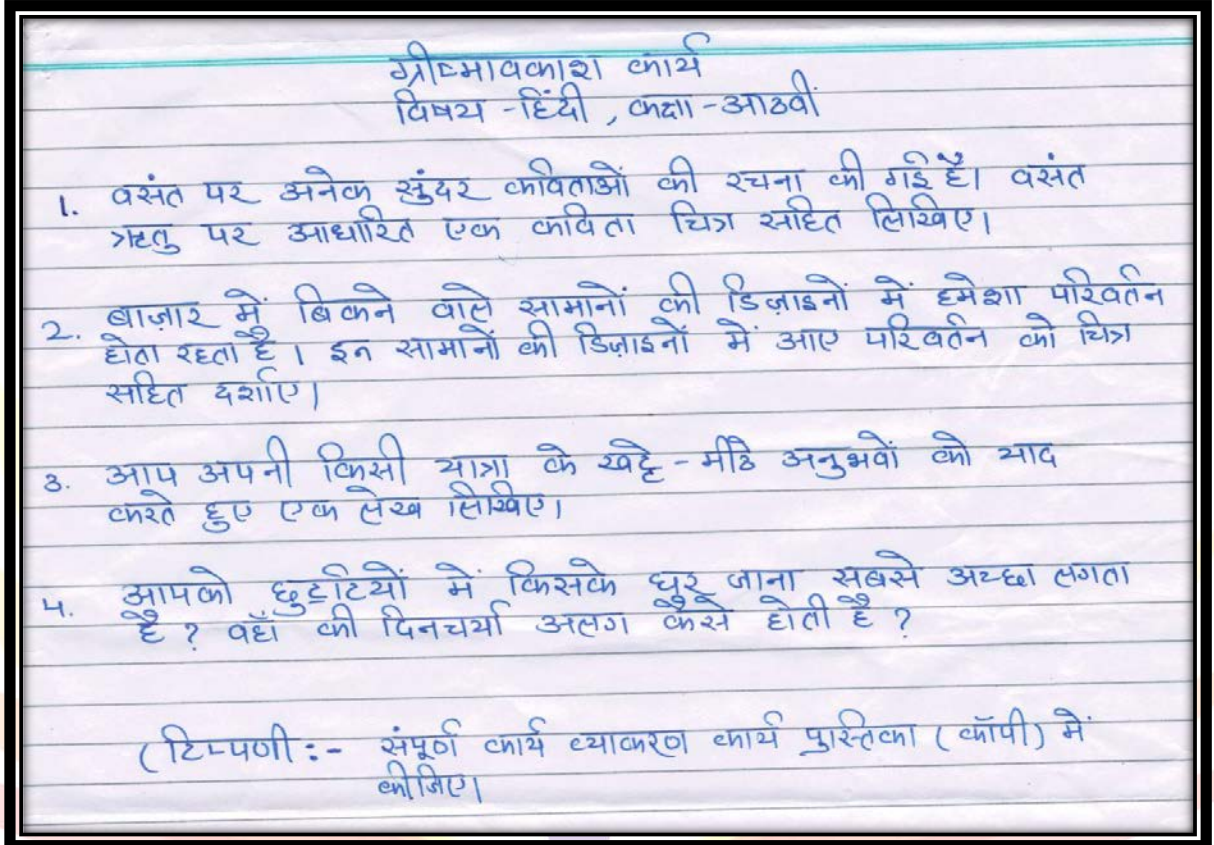 ग्रीष्मावकाश कार्य
विषय -हिंदी , कक्षा -आठवीं
1. वसंत पर अनेक सुंदर कविताओं की रचना की गई है। वसंत
ऋतु पर आधारित एक कविता चित्र सहित लिखिए।
2. बाज़ार में बिकने वाले सामानों की डिज़ाइनों में हमेशा परिवर्तन
होता रहता है । इन सामानों की डिज़ाइनों में आए परिवर्तन को चित्र
सहित दर्शाए।
3. आप अपनी किसी यात्रा के खट्टे -मीठे अनुभवों को याद
करते हुए एक लेख लिखिए।
4. आपको छुट्टियों में किसके घर जाना सबसे अच्छा लगता
है ? वहाँ की दिनचर्या अलग कैसे होती है ?
(टिप्पणी :- संपूर्ण कार्य व्याकरण कार्य पुस्तिका (कॉपी) में
कीजिए।